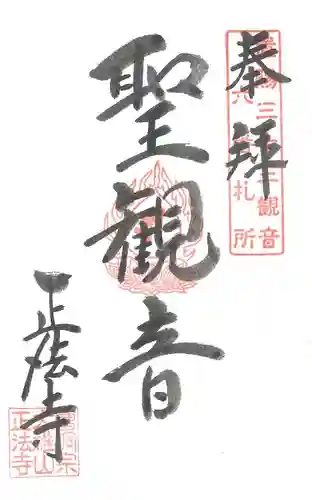 奉拝
三十三観音
札所
聖観音
正法寺
正法寺